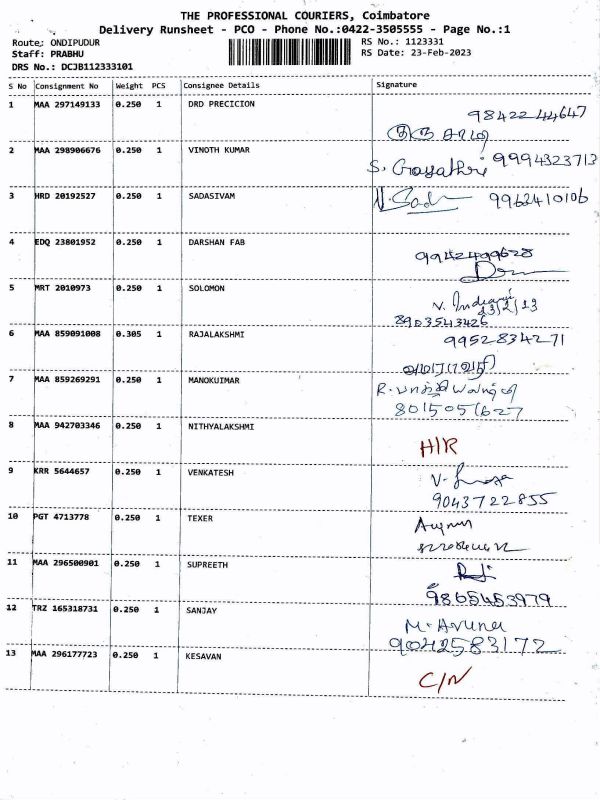 THE PROFESSIONAL COURIERS, Coimbatore
Delivery Runsheet - PCO - Phone No.:0422-3505555 - Page No.:1
Route: ONDIPUDUR RS No.: 1123331
Staff: PRABHU RS Date: 23-Feb-2023
DRS No.: DCJB112333101
S No Consignment No Weight PCS Consignee Details Signature
1 MAA 297149133 0.250 1 DRD PRECICION 9842244647
2 MAA 298906676 0.250 1 VINOTH KUMAR S. Gayathri 9994323713
3 HRD 20192527 0.250 1 SADASIVAM 9962410106
4 EDQ 23801952 0.250 1 DARSHAN FAB 9942499628
5 MRT 2010973 0.250 1 SOLOMON
23/2/23
8903543426
6 MAA 859091008 0.305 1 RAJALAKSHMI 9952834271
7 MAA 859269291 0.250 1 MANOKUIMAR
8015051627
8 MAA 942703346 0.250 1 NITHYALAKSHMI
H/R
9 KRR 5644657 0.250 1 VENKATESH
9043722855
10 PGT 4713778 0.250 1 TEXER
11 MAA 296500901 0.250 1 SUPREETH
9865453979
12 TRZ 165318731 0.250 1 SANJAY
M. Aruna
9042583172
13 MAA 296177723 0.250 1 KESAVAN
C/N